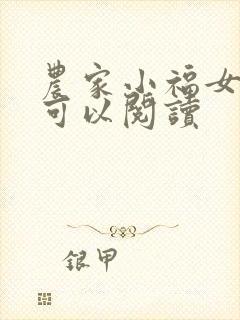 農家小福女
可以閱讀
銀甲